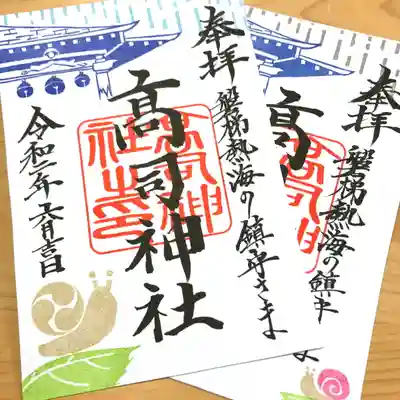 奉拝
磐梯熱海の鎮守さま
高司神社
高司神社之印
令和二年六月吉日
奉拝
磐梯熱海の鎮守
高